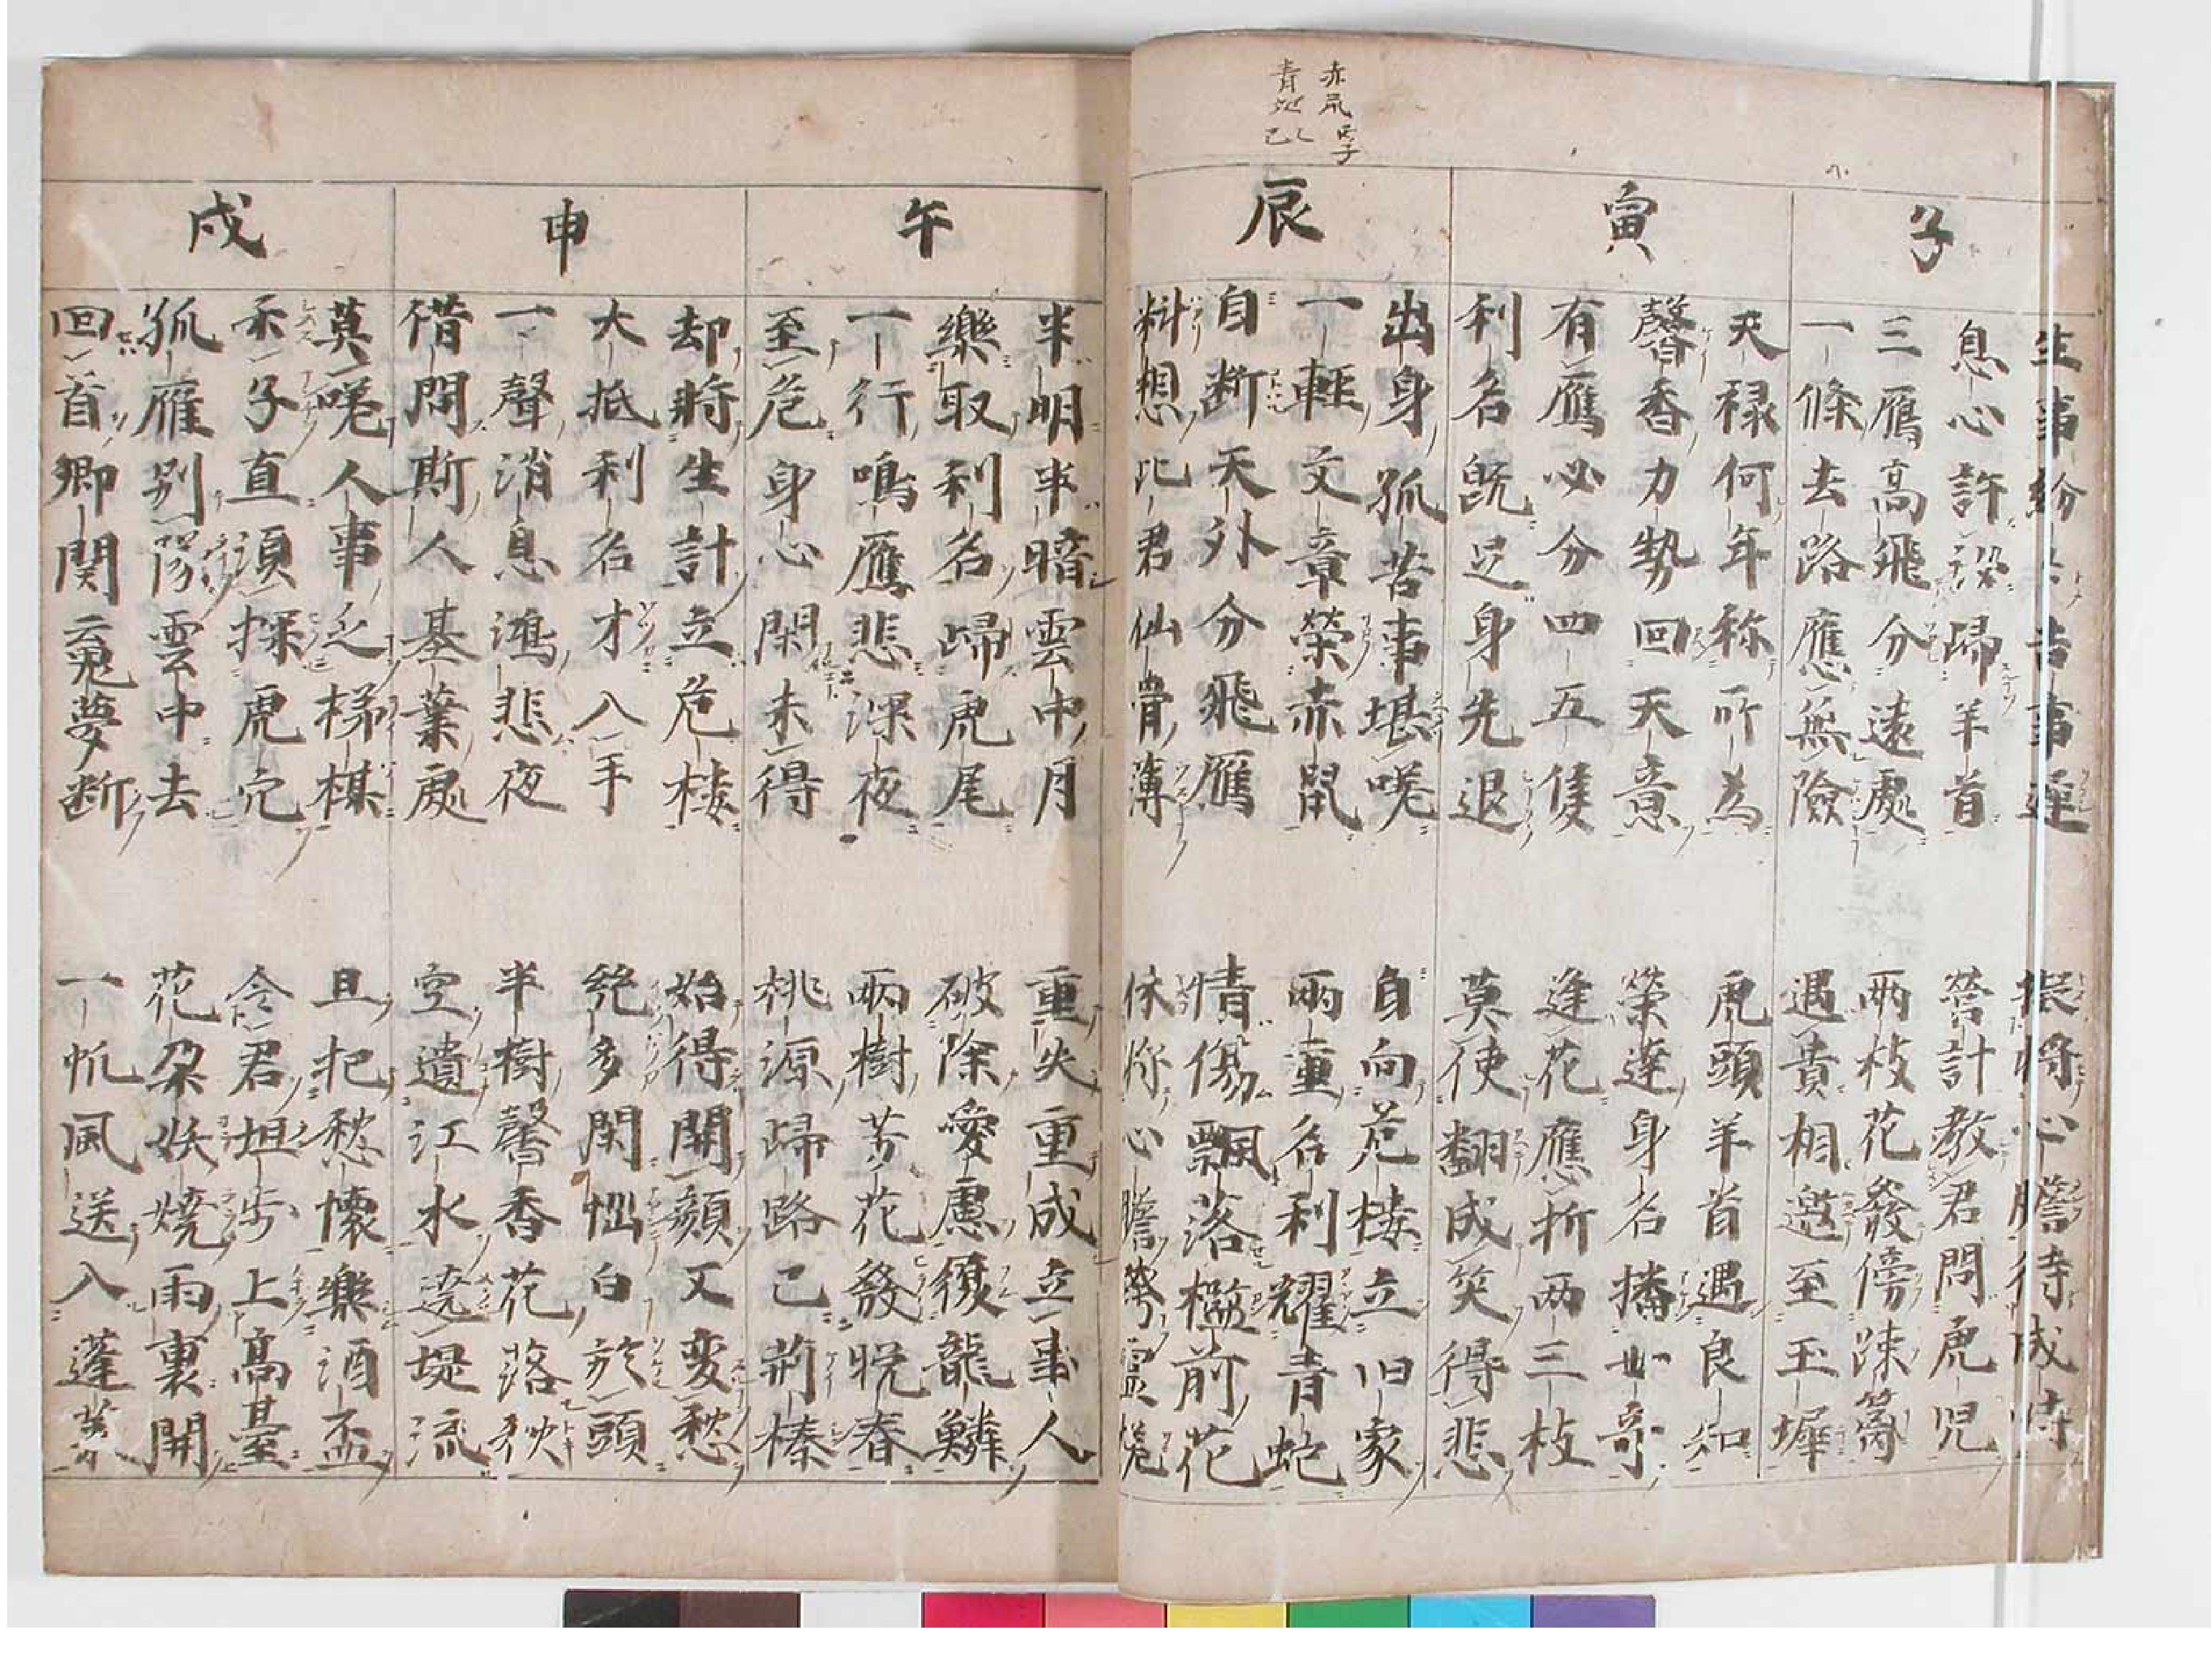 赤鼠 丙子
青蛇 乙巳
子
生事紛々苦事運 振將心膽待成時
息心許設歸羊首 營計教君問虎児
三鴈高飛分遠處 兩枝花發傍疎籬
一條去路應無險 遇貴相邀至玉墀
寅
天禄何年称所為 虎頭羊首遇良知
馨香力勢回天意 榮達身名播
有鴈必分四五隻 逢花應折兩三枝
利名既足身先退 莫使翻成笑得悲
辰
出身孤苦事堪嗟 自向危樓立旧家
一輕文章榮赤鼠 兩重名利耀青蛇
自断天外分飛雁 情傷飄落檻前花
料想比君仙骨薄 依稀心膽
午
半明半暗雲中月 重失重成立事人
樂取利名歸虎尾 破除愛慮履龍鱗
一行鳴鴈悲深夜 兩樹芳花發晩春
至危身心閑未得 桃源歸路已荊榛
申
却將生計立危樓 始得開顔又変愁
大抵利名才入手 繞多閑惱白於頭
一聲消息鴻悲夜 半樹馨香花落秋
借問斯人基業處 空遺江水遶堤流
戌
莫嗟人事之梯楳 且把愁懷樂酒盃
禾子直須探虎穴 令君坦歩上高臺
孤雁別隊雲中去 花朶妖燒雨裏開
回首卿関夢断 一帆風送入蓬莱